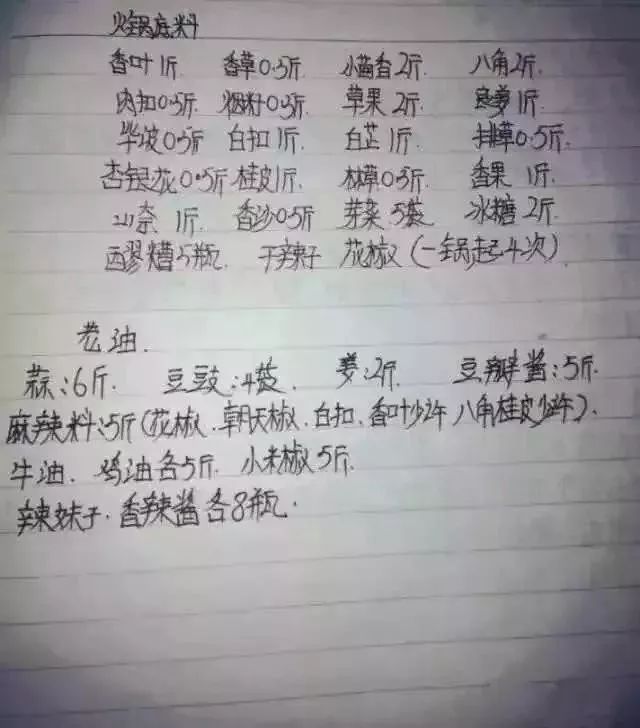 火锅底料
香叶1斤 香草0.5斤 小茴香2斤 八角2斤
肉扣0.5斤 草果2斤 良姜1斤
毕坡0.5斤 白扣1斤 白芷1斤 排草0.5斤
杏银花0.5斤 桂皮1斤 林草0.5斤 香果 1斤
山奈 1斤 香沙0.5斤 芽菜 5袋 冰糖 2斤
醪糟5瓶 干辣子 花椒(一锅起4次)
老油.
蒜:6斤. 豆豉:4袋. 姜:2斤. 豆瓣酱:5斤.
麻辣料:5斤(花椒.朝天椒.白扣.香叶少许 八角桂皮少许).
牛油.鸡油各5斤. 小米椒5斤.
辣妹子.香辣酱各8瓶.